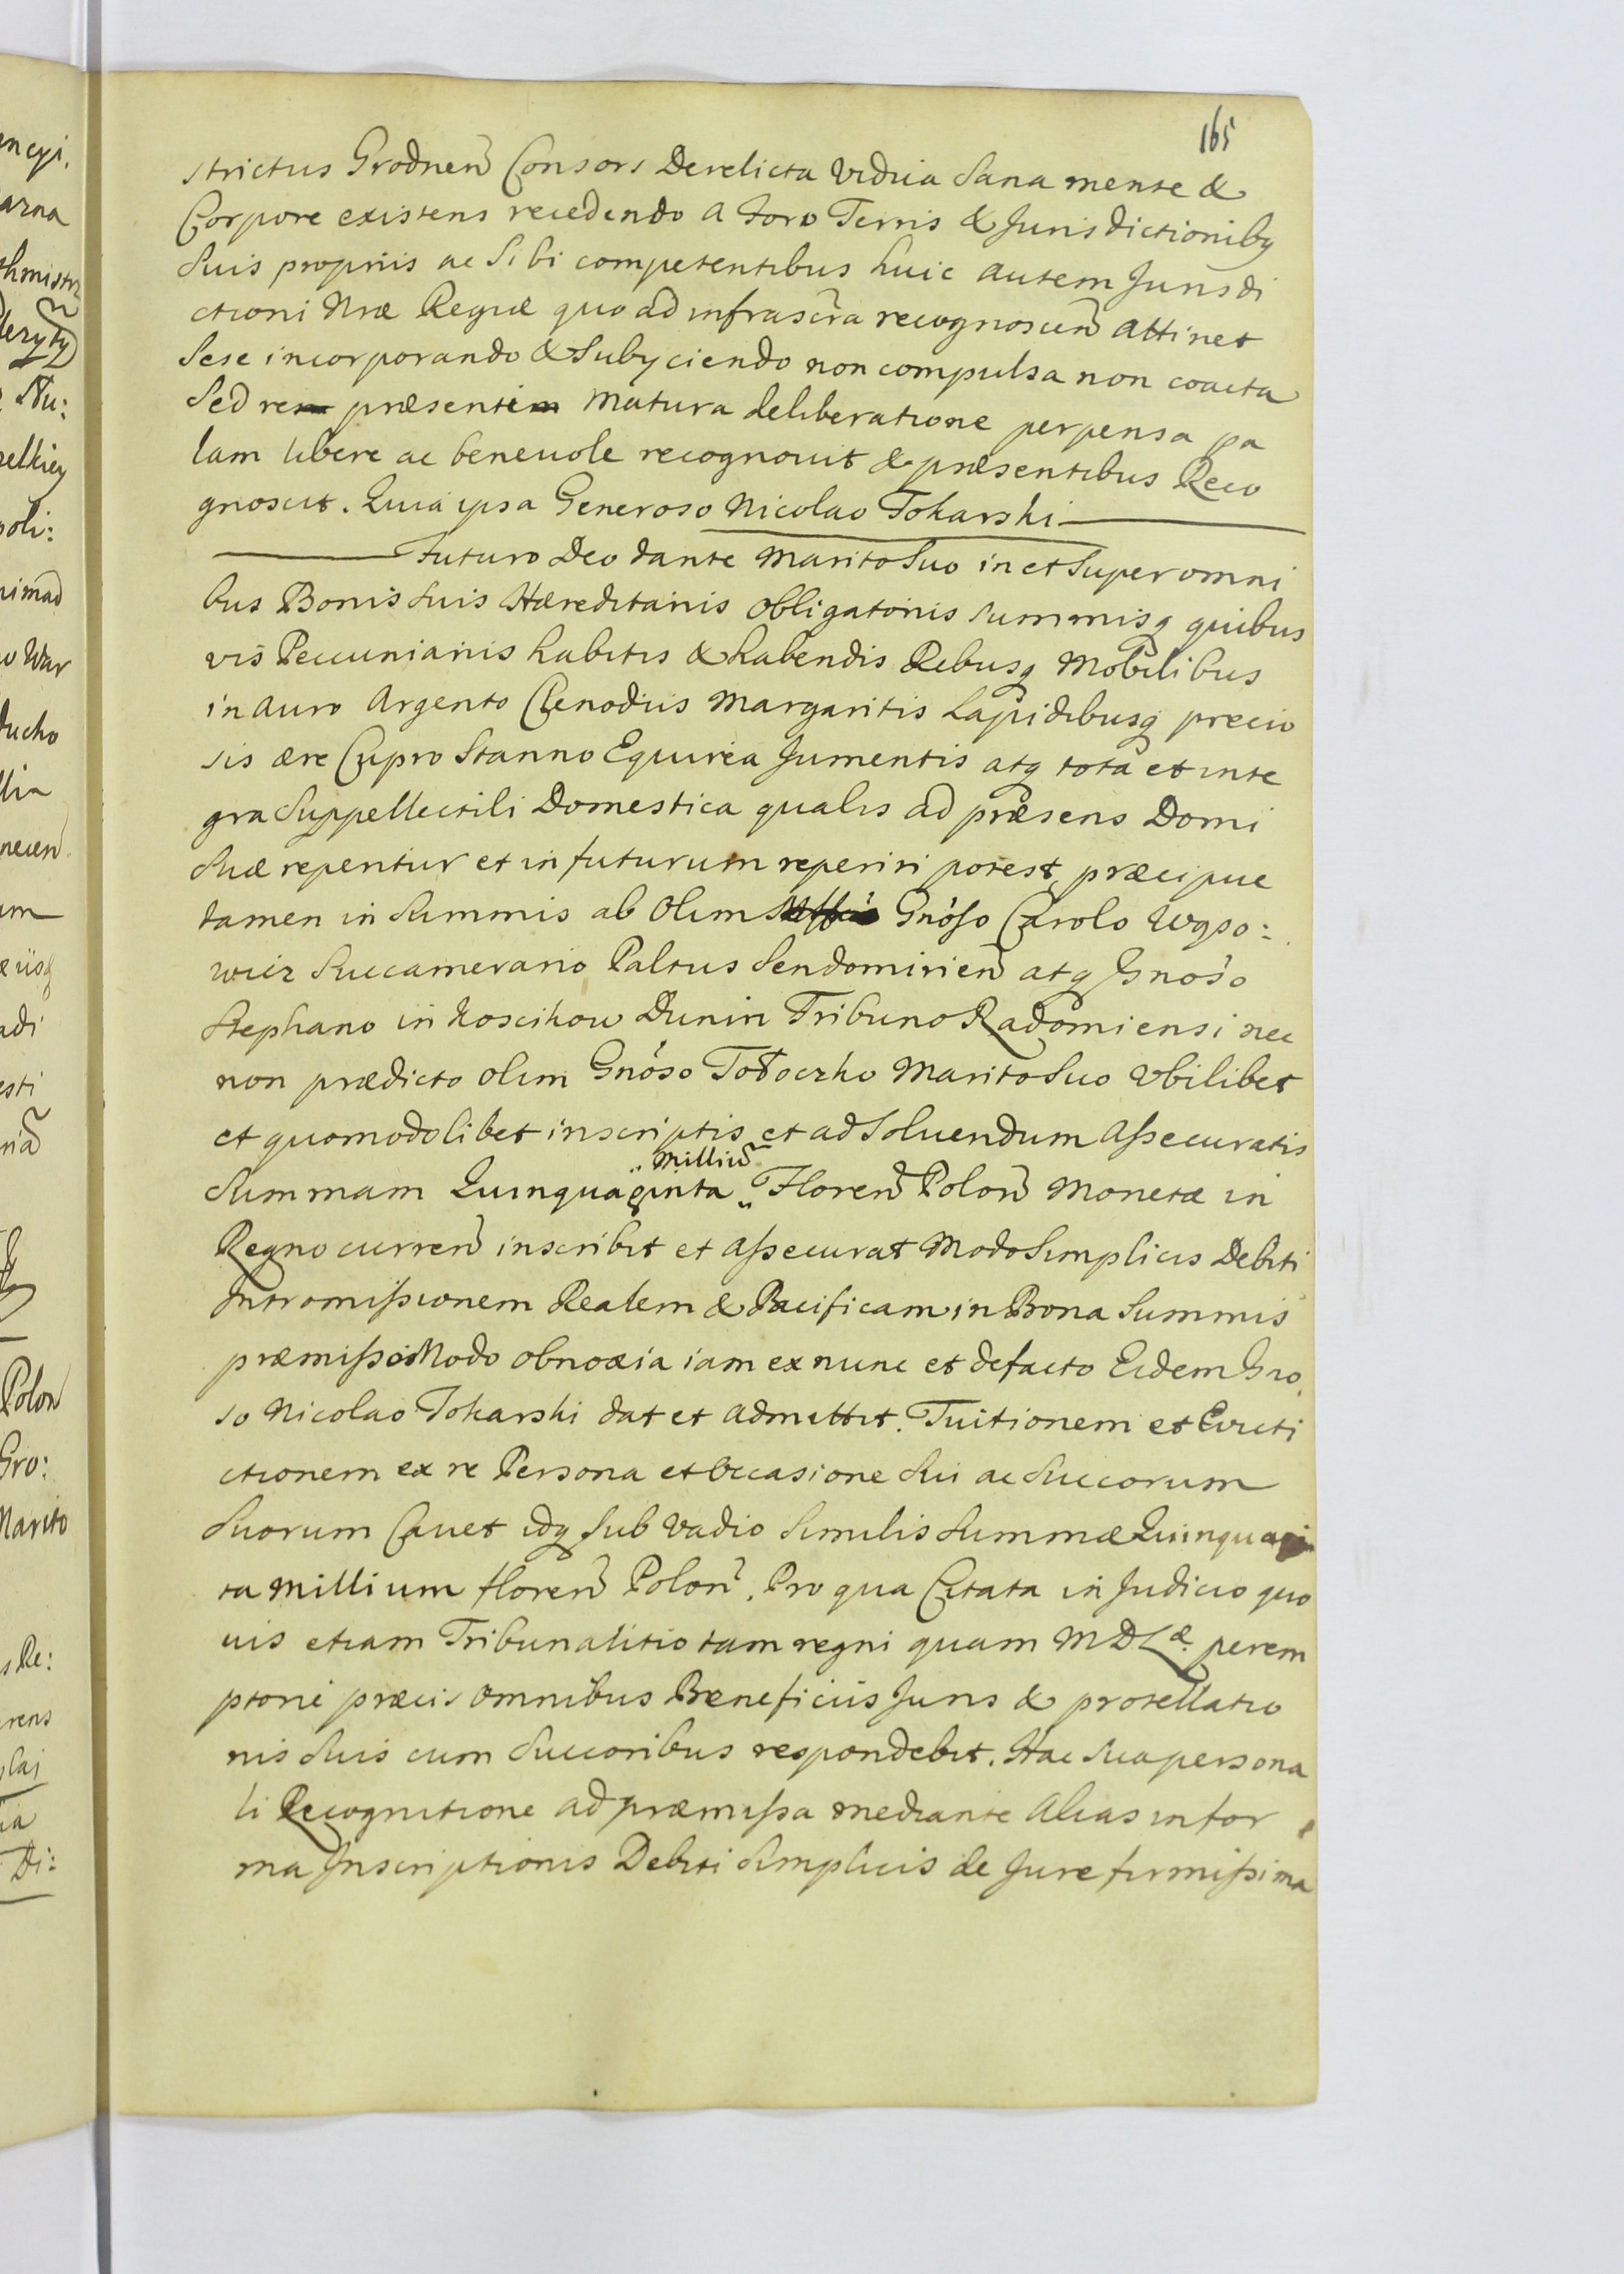 165
strictus Grodnen̄ Consors Derelicta vidua Sana mente &
Corpore existens recedendo a foro Terris & Jurisdictionibq
Suis proprijs ac Sibi competentibus huic autem Jurisdi
ctioni Nræ Regiæ quo ad infrascr̃a recognoscen̄ attinet
Sese incorporando & Subyciendo non compulsa non coacta
Sed re præsenti matura deliberatione perpensa pa
lam libere ac beneuole recognouit & præsentibus Reco
gnoscit. Quia ipsa Generoso Nicolao Tokarski
futuro Deo dante Marito Suo in et Super omni
bus Bonis Suis Hæreditarijs obligatorijs Summisq quibus
vis Pecuniarijs habitis & habendis Rebusq Mobilibus
in Auro Argento Clenodijs Margaritis Lapidibusq precio
sis ære Cupro Stanno Equirea Jumentis atq tota et inte
gra Suppellectili Domestica qualis ad præsens Domi
Suæ reperitur et in futurum reperiri potest, præcipue
tamen in Summis ab olim Gnõso Carolo
wicz Succamerario Paltus Sendomirien̄ atq Gnõso
Stephano in Koscikow Dunin Tribuno Radomiensi nec
non prædicto olim Gnõso Tołoczko Marito Suo vbilibet
et quomodolibet inscriptis et ad Soluendum Assecuratis
Summam Quinquaginta Milliũ Floren̄ Polon̄ Monetæ in
Regno curren̄ inscribit et assecurat Modo Simplicis Debiti
Intromissionem Realem & Pacificam in Bona Summis
præmisso Modo obnoxia iam ex nunc et de facto Eidem Gno
so Nicolao Tokarski dat et admittit. Tuitionem et Euicti
ctionem ex re Persona et Occasione Sui ac Succorum
Suorum Cauet idq Sub Vadio Similis Summæ Quinquagin
ta Millium floren̄ Polon̄. Pro qua Citata in Judicio quo
uis etiam Tribunalitio tam regni quam MDLæ. perem
ptorie præcis omnibus Beneficijs Juris & protellatio
nis Suis cum Succoribus respondebit. Hac Sua persona
li Recognitione ad præmissa mediante Alias in for
ma Inscriptionis Debiti Simplicis de Jure firmissima